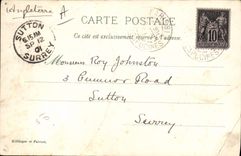 Angleterre A
CARTE POSTALE
Ce côté est exclusivement réservé à l'adresse.
SUTTON
6.15AM
SP 12
01
SURREY
10
Monsieur Roy Johnston
3 Cumnor Road
Sutton
Surrey